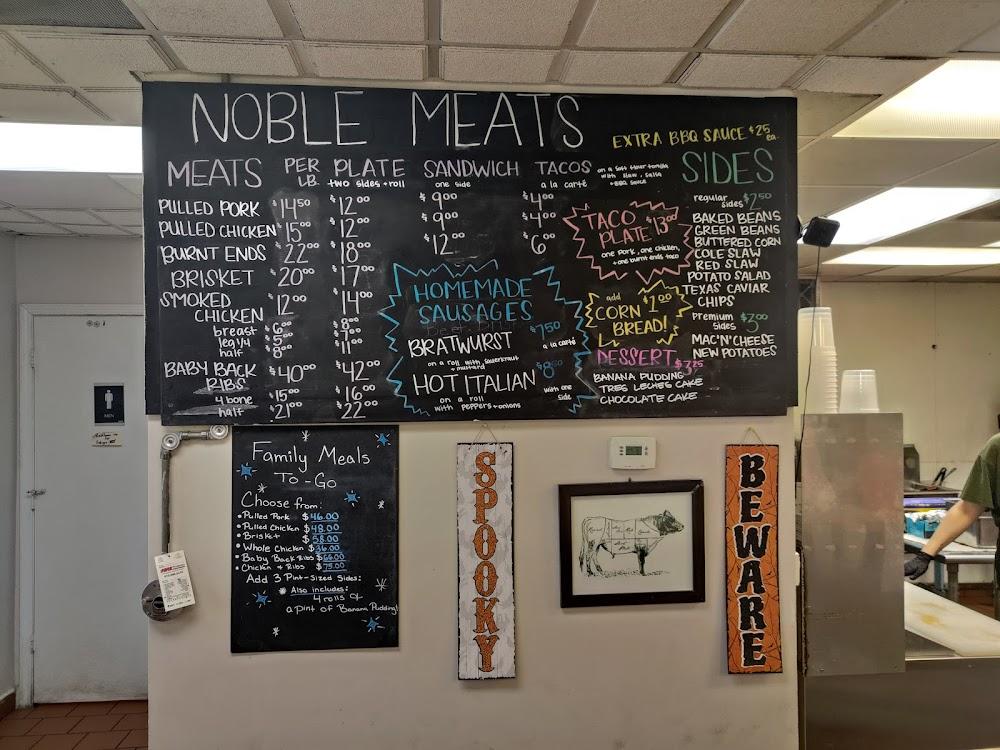 NOBLE MEATS
EXTRA BBQ SAUCE $.25 ea.
MEATS PER LB. PLATE SANDWICH TACOS
two sides + roll one side a la carté
on a soft flour tortilla
with slaw, salsa
+ BBQ sauce
PULLED PORK $14.50 $12.00 $9.00 $4.00
PULLED CHICKEN $15.00 $12.00 $9.00 $4.00
BURNT ENDS $22.00 $18.00 $12.00 $6.00
BRISKET $20.00 $17.00
SMOKED CHICKEN $12.00 $14.00
breast $6.00 $8.00
leg 1/4 $5.00 $7.00
half $8.00 $11.00
BABY BACK RIBS $40.00 $42.00
4 bone $15.00 $16.00
half $21.00 $22.00
HOMEMADE
SAUSAGES
BRATWURST $7.50
a la carté
on a roll with sauerkraut
+ mustard
HOT ITALIAN $8.50
with one
side
on a roll
with peppers + onions
TACO
PLATE $13.00
one pork, one chicken,
+ one burnt ends taco
add $1.00
CORN
BREAD!
DESSERT $3.25
BANANA PUDDING
TRES LECHES CAKE
CHOCOLATE CAKE
SIDES
regular sides $2.50
BAKED BEANS
GREEN BEANS
BUTTERED CORN
COLE SLAW
RED SLAW
POTATO SALAD
TEXAS CAVIAR
CHIPS
Premium Sides $3.00
MAC'N'CHEESE
NEW POTATOES
Family Meals
To-Go
Choose from:
• Pulled Pork $46.00
• Pulled Chicken $48.00
• Brisket $58.00
• Whole Chicken $36.00
• Baby Back Ribs $66.00
• Chicken & Ribs $75.00
Add 3 Pint-Sized Sides:
* Also includes:
4 rolls &
a pint of Banana Pudding!
SPOOKY
BEWARE
MEN